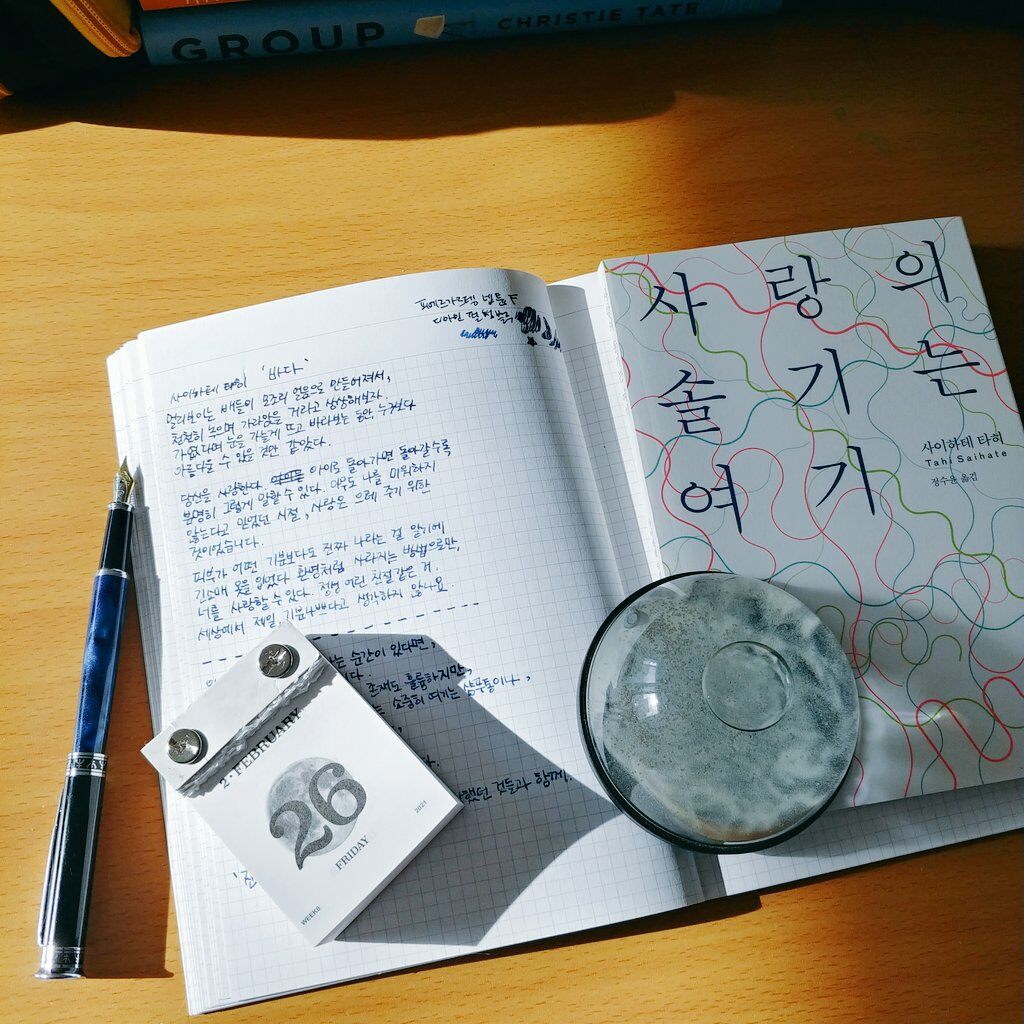 GROUP CHRISTIE TATE
디아민
사이하테 타히 '바다'
멀리보이는 배들이 모조리 얼음으로 만들어져서,
천천히 녹으며 가라앉을 거라고 상상해보자.
가엾다며 눈을 가늘게 뜨고 바라보는 동안, 누구보다
아름다울 수 있을 것만 같았다.
당신을 사랑한다. 아이로 돌아가면 돌아갈수록
분명히 그렇게 말할 수 있다. 아무도 나를 미워하지
않는다고 믿었던 시절, 사랑은 으레 주기 위한
것이었습니다.
피부가 어떤 기분보다도 진짜 나라는 걸 알기에
긴소매 옷을 입었다. 환영처럼 사라지는 방법으로만,
너를 사랑할 수 있다. 정말 어린 친절같은 거.
세상에서 제일, 기분나쁘다고 생각하지 않나요.
는 순간이 있다면,
다.
존재도 훌륭하지만,
소중히 여기는 샴푸통이나,
다.
했던 것들과 함께.
2·FEBRUARY
26
FRIDAY
2021
WEEK8
사랑의
솔기는
여기
사이하테 타히
Tahi Saihate
정수윤 옮김